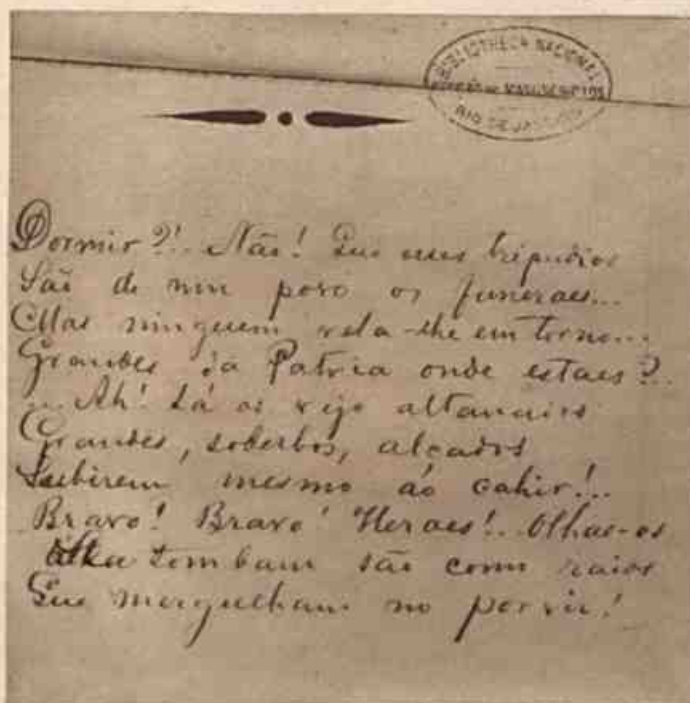 BIBLIOTHECA NACIONAL
SECÇÃO DE MANUSCRIPTOS
RIO DE JANEIRO
Dormir?!.. Não! Que esses tripudios
São de um povo os funeraes...
Mas ninguem vela-lhe em torno...
Grandes da Patria onde estaes?..
... Ah! Lá os vejo altaneiros
Grandes, soberbos, alçados
Subirem mesmo ao cahir!..
Bravo! Bravo! Heroes!.. Olhae-os
tombam são como raios
Que mergulham no porvir!